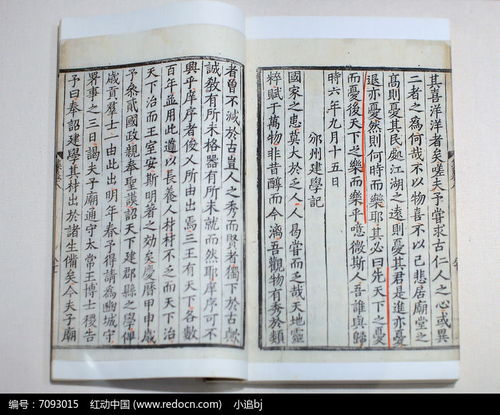 其喜洋洋者矣嗟夫予嘗求古仁人之心或異
二者之為何哉不以物喜不以己悲居廟堂之
高則憂其民處江湖之遠則憂其君是進亦憂
退亦憂然則何時而樂耶其必曰先天下之憂
而憂後天下之樂而樂乎噫微斯人吾誰與歸
時六年九月十五日
邠州建學記
國家之患莫大於乏人人曷嘗而乏哉天地靈
粹賦于萬物非昔醇而今漓吾觀物有秀於類
者曾不減於古豈人之秀而賢者獨下於古歟
誠教有所未格器有所未就而然耶庠序可不
興乎庠序者俊乂所由出焉三王有天下各數
百年並用此道以長養人材材不乏而天下治
天下治而王室安斯明著之効矣慶曆甲申歲
予參貳國政親奉聖謨詔天下建郡縣之學俾
歲貢群士一由此出明年春予得請為豳城守
署事之三日謁夫子廟通守太常王博士稷告
予曰奉詔建學其材出於諸生備矣今夫子廟
编号：7093015 红动中国 (www.redocn.com) 小追bj